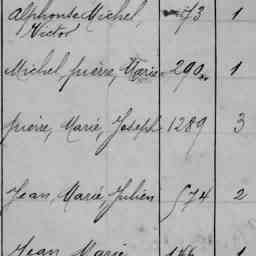 Alphonse Michel, 73 1
Victor
Michel, pierre, Marie 290 1
pierre, Marie, Joseph 1289 3
Jean, Marie, Julien 574 2
Jean Marie 1